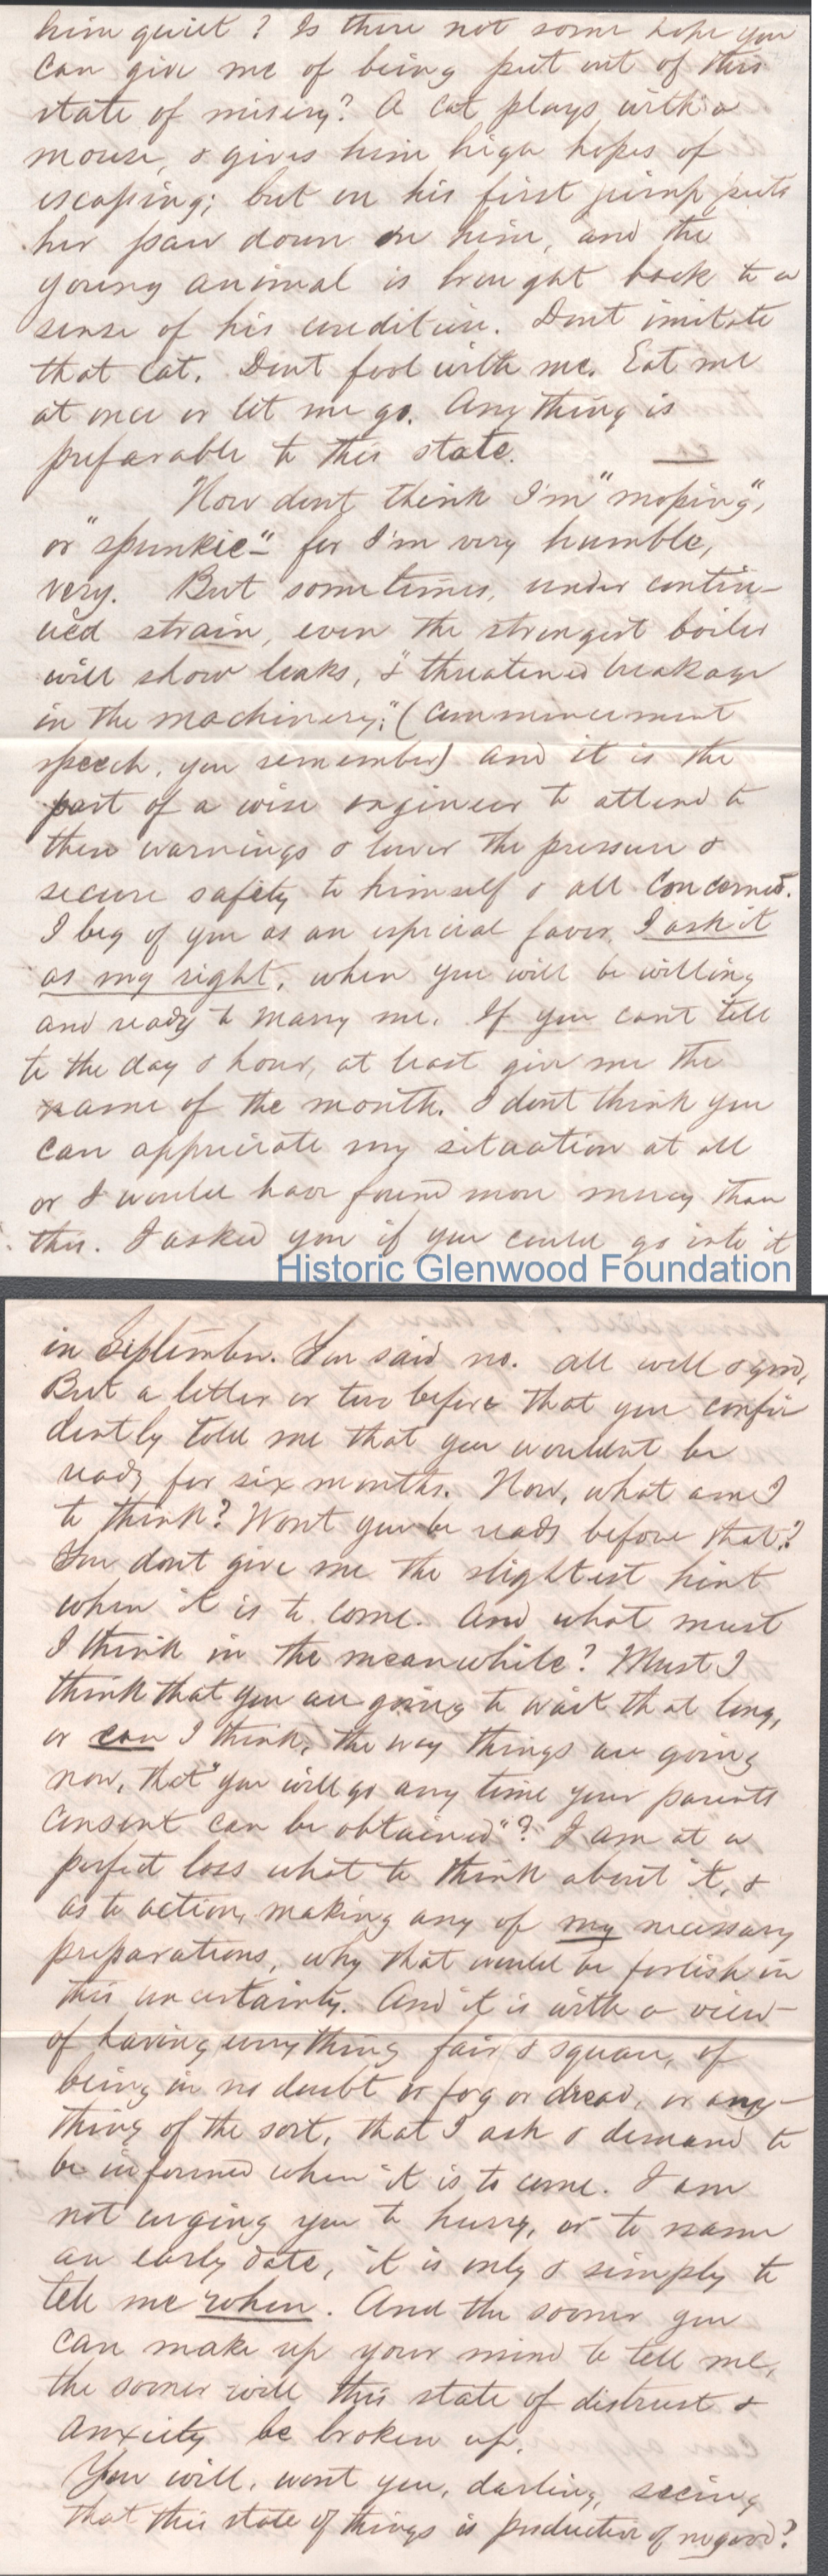 him quiet? Is there not some hope you
can give me of being put out of this
state of misery? A cat plays with a
mouse, & gives him high hopes of
escaping; but on his first jump puts
her paw down on him, and the
young animal is brought back to a
sense of his condition. Dont imitate
that cat. Dont fool with me. Eat me
at once or let me go. Anything is
preferable to this state.
Now dont think I'm "moping",
or "spunkie" for I'm very humble,
very. But sometimes, under contin-
ued strain, even the strongest boiler
will show leaks, & "threatened breakage
in the machinery." (Commencement
speech, you remember) and it is the
part of a wise engineer to attend to
these warnings & lower the pressure &
secure safety to himself & all concerned.
I beg of you as an especial favor, I ask it
as my right, when you will be willing
and ready to marry me. If you cant tell
to the day & hour, at least give me the
name of the month. I dont think you
can appreciate my situation at all
or I would have found more mercy than
this. I asked you if you could go into it
Historic Glenwood Foundation
in September. You said no. All well & good,
But a letter or two before that you confi
dently told me that you wouldnt be
ready for six months. Now, what am I
to think? Wont you be ready before that?
You dont give me the slightest hint
when it is to come. And what must
I think in the meanwhile? Must I
think that you are going to wait that long,
or can I think, the way things are going
now, that "you will go any time your parents
consent can be obtained"? I am at a
perfect loss what to think about it, &
as to action, making any of my necessary
preparations, why that would be foolish in
this uncertainty. And it is with a view
of having everything fair & square, of
being in no doubt or fog or dread, or any-
thing of the sort, that I ask & demand to
be informed when it is to come. I am
not urging you to hurry, or to name
an early date, it is only & simply to
tell me when. And the sooner you
can make up your mind to tell me,
the sooner will this state of distrust &
anxiety be broken up.
You will, wont you, darling, seeing
that this state of things is productive of no good?